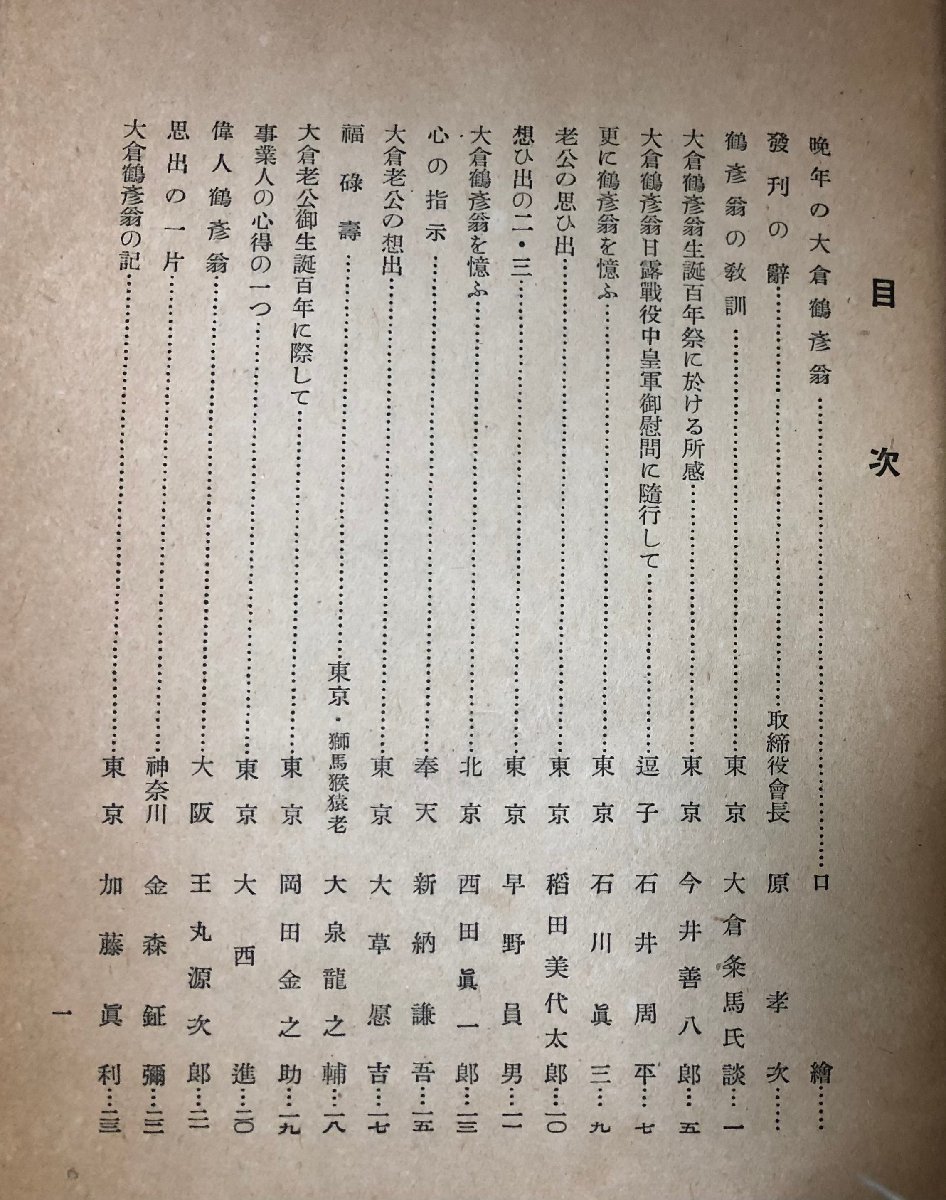 目次
晩年の大倉鶴彦翁……口繪……
發刊の辭……取締役會長 原孝次……
鶴彦翁の敎訓……東京 大倉粂馬氏談…一
大倉鶴彦翁生誕百年祭に於ける所感……東京 今井善八郎…五
大倉鶴彦翁日露戰役中皇軍御慰問に隨行して……逗子 石井周平…七
更に鶴彦翁を憶ふ……東京 石川眞三…九
老公の思ひ出……東京 稻田美代太郎…一〇
想ひ出の二・三……東京 早野員男…一一
大倉鶴彦翁を憶ふ……北京 西田眞一郎…一三
心の指示……奉天 新納謙吾…一五
大倉老公の想出……東京 大草愿吉…一七
福碌壽……東京・獅馬猴猿老 大泉龍之輔…一八
大倉老公御生誕百年に際して……東京 岡田金之助…一九
事業人の心得の一つ……東京 大西進…二〇
偉人鶴彦翁……大阪 王丸源次郎…二一
思出の一片……神奈川 金森鉦彌…二三
大倉鶴彦翁の記……東京 加藤眞利…二三
一